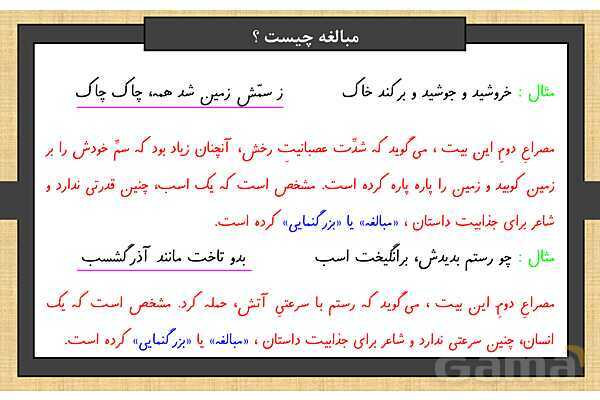 مبالغه چیست ؟
مثال : خروشید و جوشید و برکند خاک ز سمّش زمین شد همه، چاک چاک
مصراعِ دومِ این بیت ، می‌گوید که شدّتِ عصبانیتِ رخش، آنچنان زیاد بود که سمِّ خودش را بر
زمین کوبید و زمین را پاره پاره کرده است. مشخص است که یک اسب، چنین قدرتی ندارد و
شاعر برای جذابیت داستان ، «مبالغه» یا «بزرگنمایی» کرده است.
مثال : چو رستم بدیدش، برانگیخت اسب بدو تاخت مانند آذرگشسب
مصراعِ دومِ این بیت ، می‌گوید که رستم با سرعتیِ آتش، حمله کرد. مشخص است که یک
انسان، چنین سرعتی ندارد و شاعر برای جذابیت داستان ، «مبالغه» یا «بزرگنمایی» کرده است.
Gama